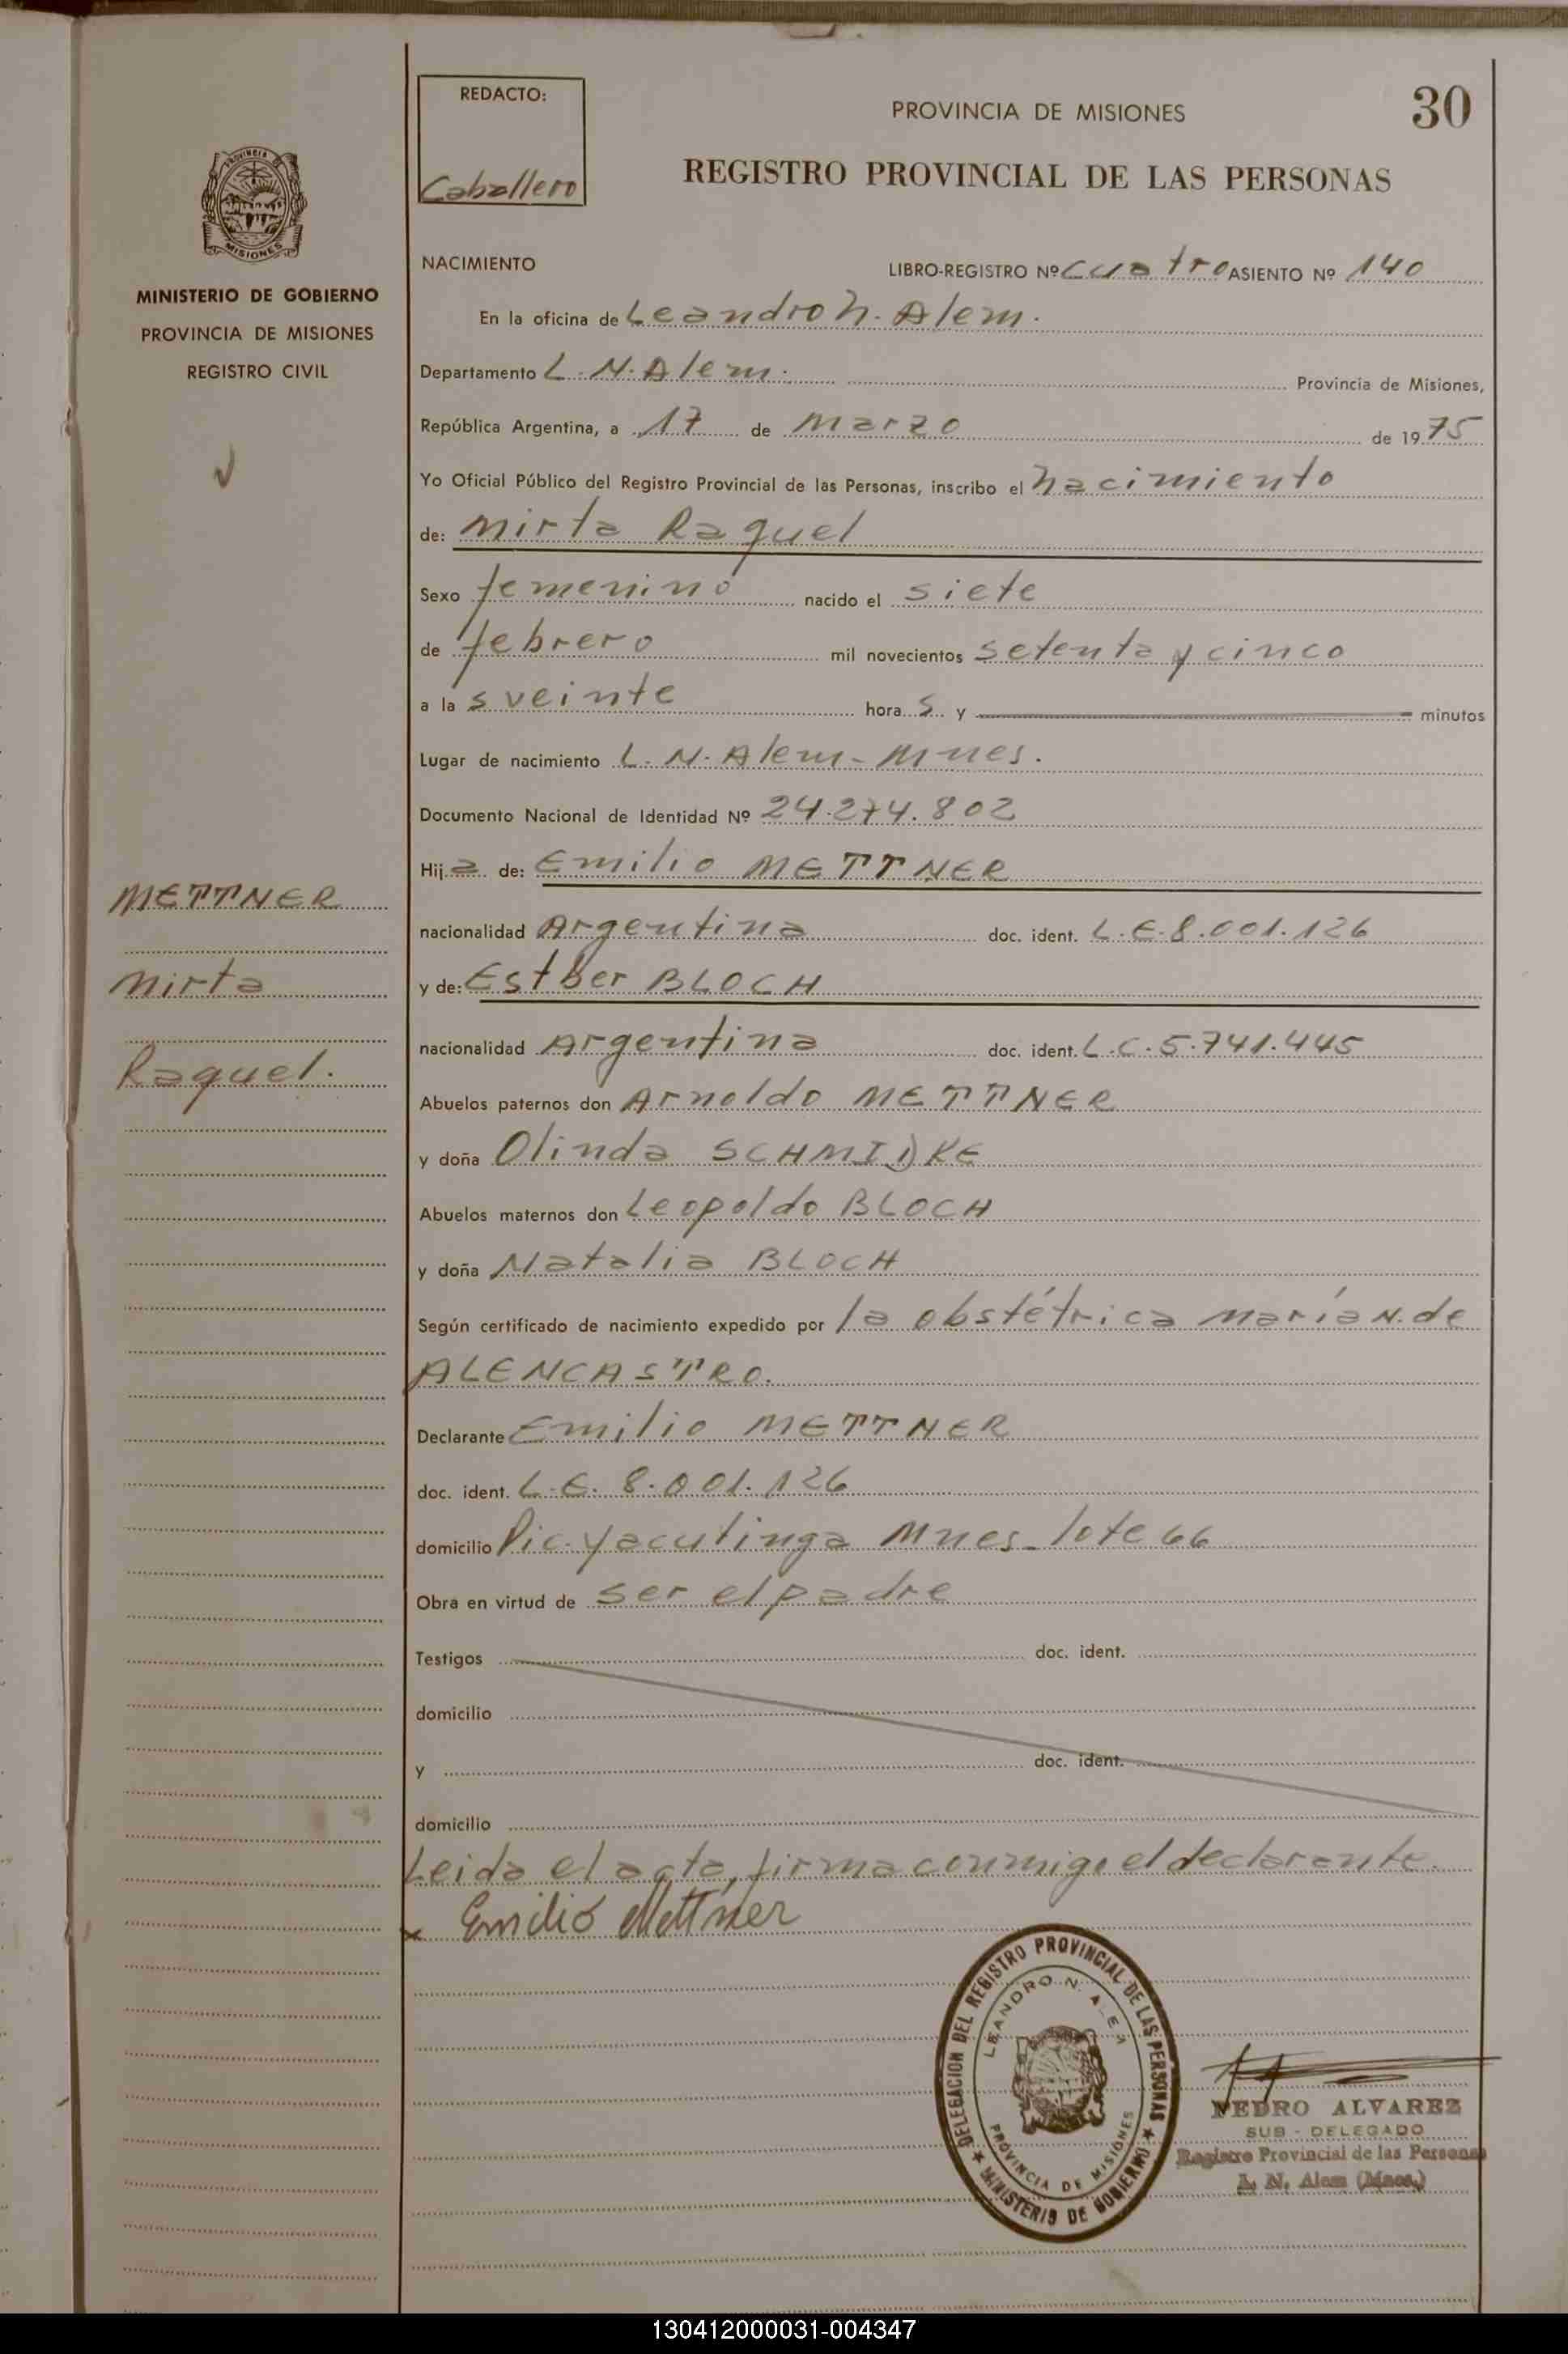 REDACTO:
Caballero
PROVINCIA DE MISIONES
30
REGISTRO PROVINCIAL DE LAS PERSONAS
PROVINCIA DE
MISIONES
MINISTERIO DE GOBIERNO
PROVINCIA DE MISIONES
REGISTRO CIVIL
NACIMIENTO
LIBRO-REGISTRO Nº cuatro ASIENTO Nº 140
En la oficina de Leandro N. Alem.
Departamento L. N. Alem. Provincia de Misiones,
República Argentina, a 17 de Marzo de 1975
Yo Oficial Público del Registro Provincial de las Personas, inscribo el nacimiento
de: Mirta Raquel
Sexo femenino nacido el siete
de febrero mil novecientos setenta y cinco
a las veinte horas y minutos
Lugar de nacimiento L. N. Alem - Mnes.
Documento Nacional de Identidad Nº 24.274.802
Hija de: Emilio METTNER
nacionalidad Argentina doc. ident. L.E. 8.001.126
y de: Esther BLOCH
nacionalidad Argentina doc. ident. L.C. 5.741.445
Abuelos paternos don Arnoldo METTNER
y doña Olinda SCHMIDKE
Abuelos maternos don Leopoldo BLOCH
y doña Natalia BLOCH
Según certificado de nacimiento expedido por la obstétrica María N. de
ALENCASTRO.
Declarante Emilio METTNER
doc. ident. L.E. 8.001.126
domicilio Pic. Yacutinga Mnes - lote 66
Obra en virtud de ser el padre
Testigos doc. ident.
domicilio
y doc. ident.
domicilio
Leida el acta, firma conmigo el declarante.
x Emilio Mettner
METTNER
Mirta
Raquel.
DELEGACION DEL REGISTRO PROVINCIAL DE LAS PERSONAS
MINISTERIO DE GOBIERNO
LEANDRO N. ALEM
PROVINCIA DE MISIONES
PEDRO ALVAREZ
SUB - DELEGADO
Registro Provincial de las Personas
L. N. Alem (Mnes.)
130412000031-004347